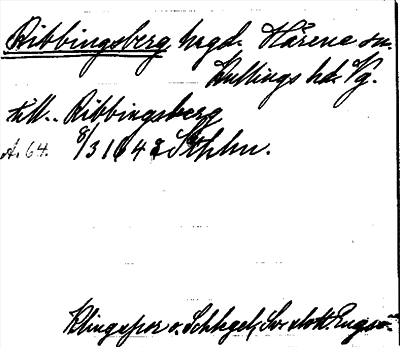 Ribbingsberg hrgd. Härene sn.
Kullings hd. Vg.
till. Ribbingsberg
A. 64. 8/3 1642 Sthlm.
Klingspor o. Schlegel, Sv. slott. Engsö